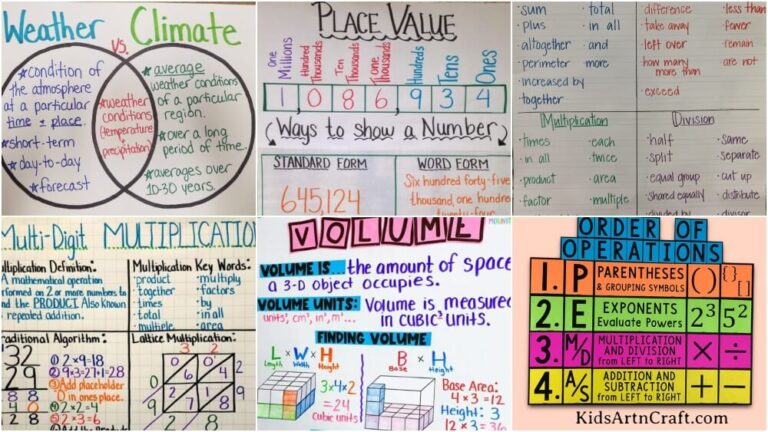 Weather
vs.
Climate
condition of
the atmosphere
at a particular
time + place.
short-term
day-to-day
forecast
weather
conditions
(temperature +
precipitation)
average
weather conditions
of a particular
region.
over a long
period of time.
averages over
10-30 years.
PLACE VALUE
One Millions
Hundred Thousands
Ten Thousands
One Thousands
Hundreds
Tens
Ones
1,086,934
Ways to show a Number
STANDARD FORM
645,124
WORD FORM
Six hundred forty-five
thousand, one hundred
twenty-four
sum
total
plus
in all
altogether
and
perimeter
more
increased by
together
difference
less than
take away
fewer
left over
remain
how many more than
are not
exceed
Multiplication
times
each
in all
twice
product
area
factor
multiple
Division
half
same
split
separate
equal group
cut up
shared equally
distribute
divided by
divisor
Multi-Digit MULTIPLICATION
Multiplication Definition:
A mathematical operation
performed on 2 or more numbers to
find the PRODUCT. Also known
repeated addition.
Multiplication Key Words:
product
multiply
together
factors
times
by
total
in all
multiple
area
Traditional Algorithm:
32
29
① 2×9=18
② 9×3=27+1=28
③ Add placeholder
0 in ones place.
④ 2×2=4
⑤ 2×3=6
Lattice Multiplication:
3 2
0 6
0 4
2 7
1 8
2
9
9
2 8
VOLUME
VOLUME IS... the amount of space
a 3-D object occupies.
VOLUME UNITS: Volume is measured
units³, cm³, in³, m³...
in CUBIC³ UNITS.
FINDING VOLUME
L × W × H
Length
Width
Height
3×4×2
=24
Cubic units
B × H
Base
Height
Base Area:
4×3=12
Height: 3
12×3=36
ORDER OF
OPERATIONS
1. P PARENTHESES & GROUPING SYMBOLS ( ) { } [ ]
2. E EXPONENTS Evaluate Powers 2³ 5²
3. M/D MULTIPLICATION AND DIVISION from LEFT to RIGHT × ÷
4. A/S ADDITION AND SUBTRACTION from LEFT to RIGHT + −
KidsArtnCraft.com